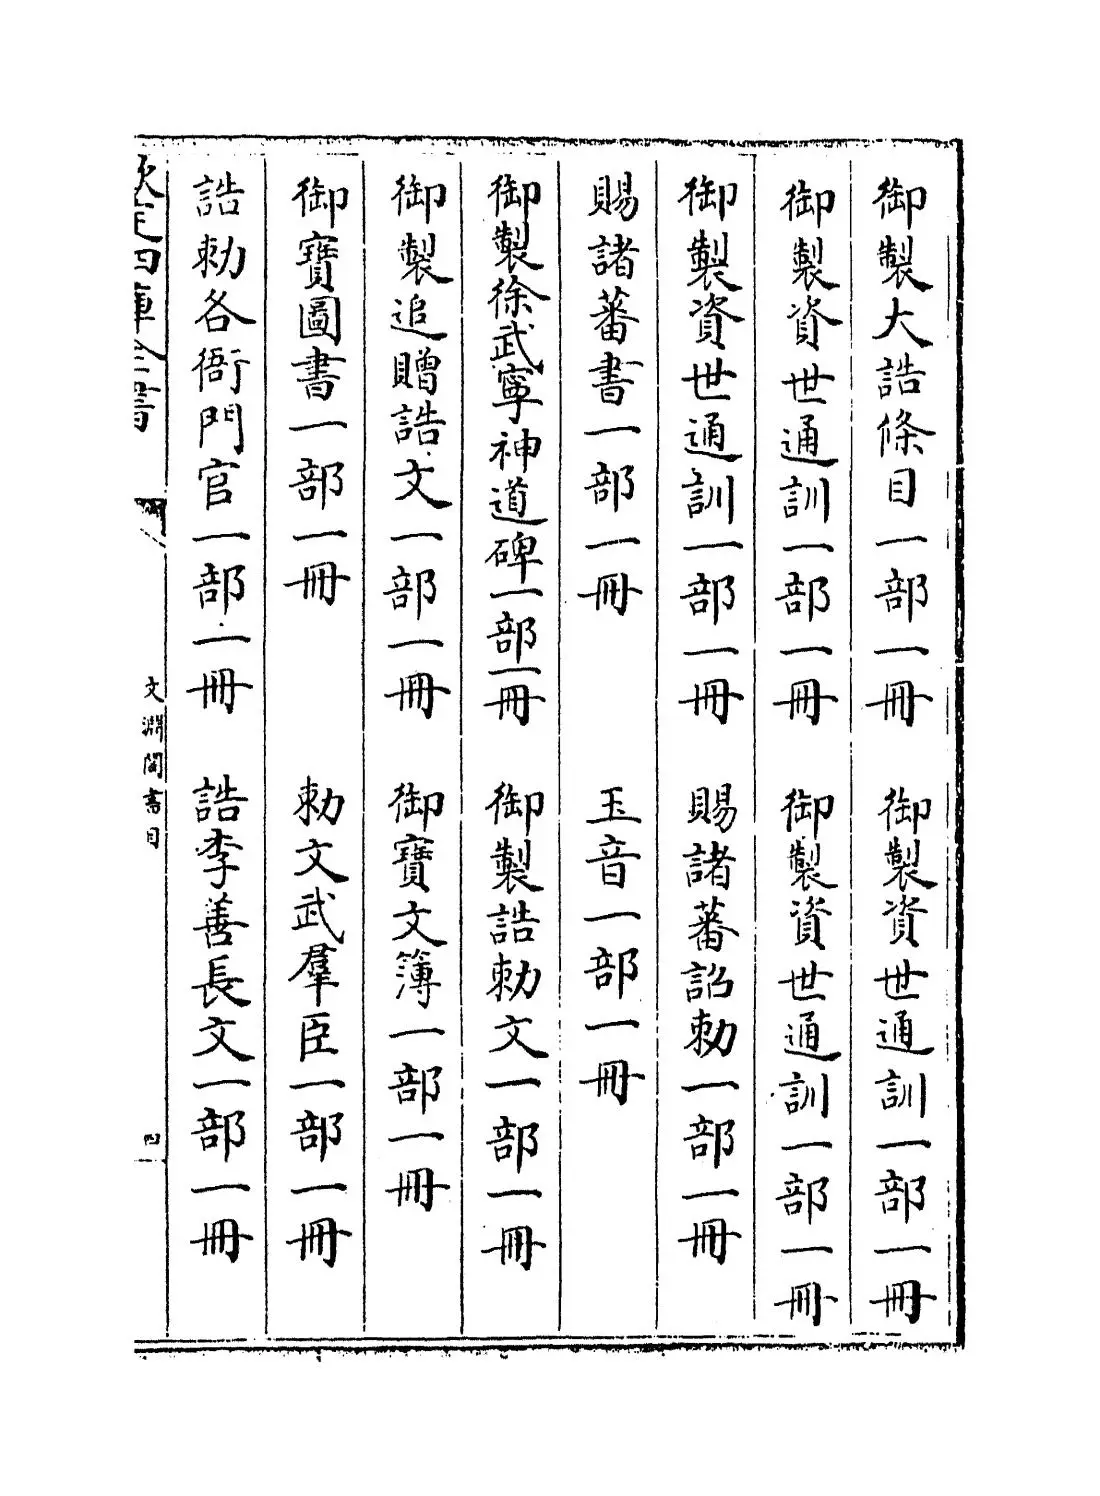 御製大誥條目一部一冊　御製資世通訓一部一冊
御製資世通訓一部一冊　御製資世通訓一部一冊
御製資世通訓一部一冊　賜諸蕃詔勅一部一冊
賜諸蕃書一部一冊　玉音一部一冊
御製徐武寧神道碑一部一冊　御製誥勅文一部一冊
御製追贈誥文一部一冊　御寶文簿一部一冊
御寶圖書一部一冊　勅文武羣臣一部一冊
誥勅各衙門官一部一冊　誥李善長文一部一冊
欽定四庫全書　文淵閣書目　四